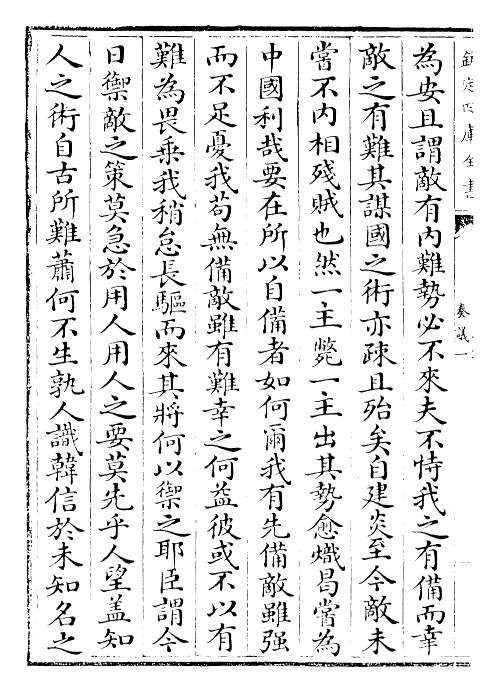 欽定四庫全書
奏議一
為安且謂敵有内難勢必不來夫不恃我之有備而幸
敵之有難其謀國之術亦疎且殆矣自建炎至今敵未
嘗不内相殘賊也然一主斃一主出其勢愈熾曷嘗為
中國利哉要在所以自備者如何爾我有先備敵雖强
而不足憂我苟無備敵雖有難幸之何益彼或不以有
難為畏乗我稍怠長驅而來其將何以禦之耶臣謂今
日禦敵之策莫急於用人用人之要莫先乎人望盖知
人之術自古所難蕭何不生孰人識韓信於未知名之